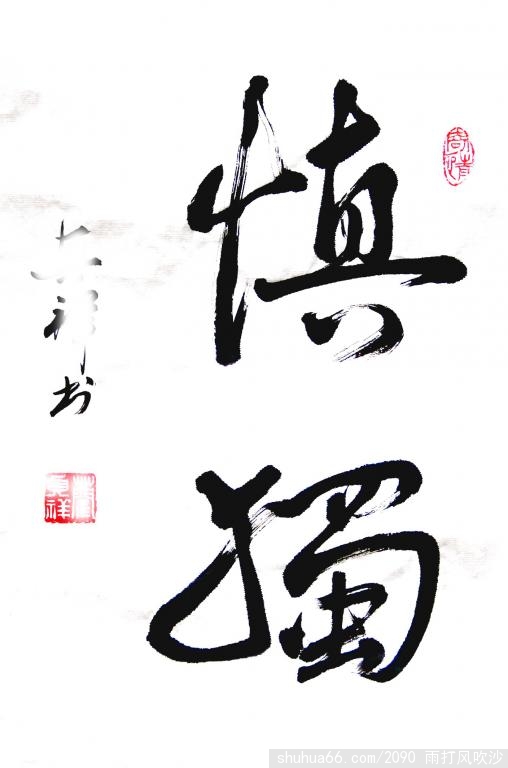 慎獨
祥书
shuhua66.com/2090 雨打风吹沙